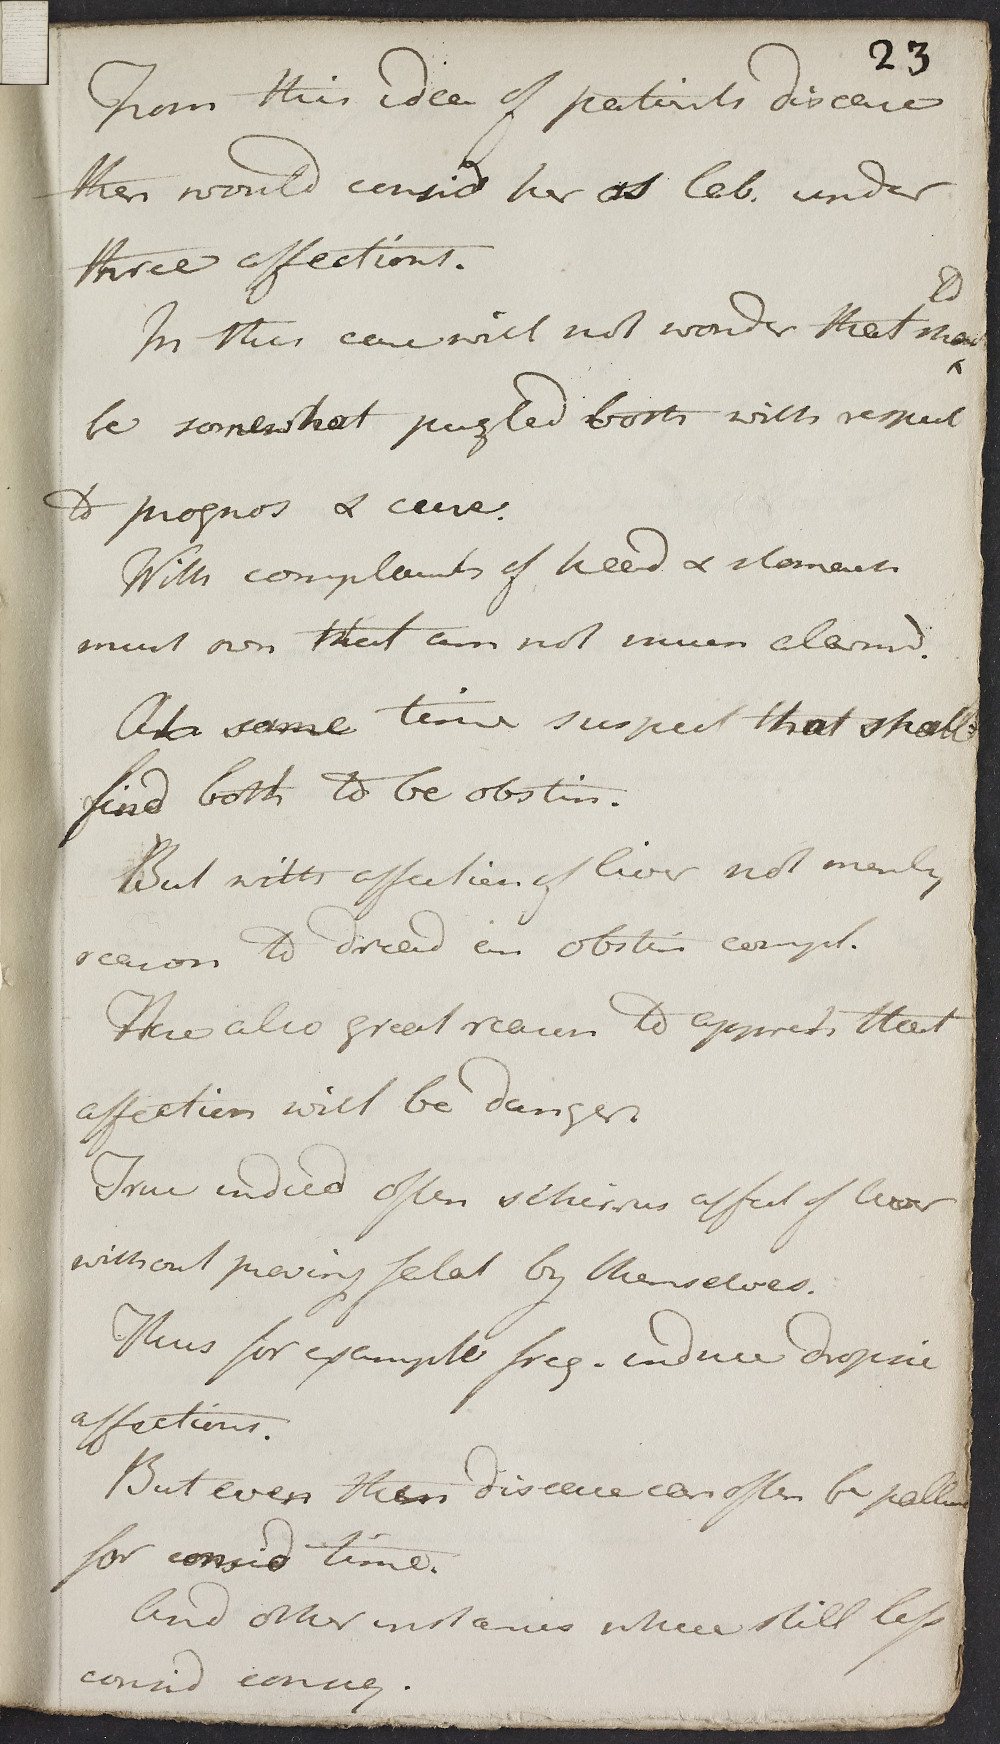 23
From this idea of patients disease
then would consid her as lab. under
three affections.
In this case will not wonder that shoud
be somewhat puzled both with respect
to prognos & cure.
With complaints of head & stomach
must own that am not much alarmd.
At same time suspect that shall
find both to be obstin.
But with affection of liver not merely
reason to dread an obstin compl.
Have also great reason to appreh that
affection will be danger.
True indeed often schirrus affect of liver
without proving fatal by themselves.
Thus for example freq. induce dropsic
affections.
But even then disease can often be palliat
for consid time.
And other instances where still less
consid conseq.